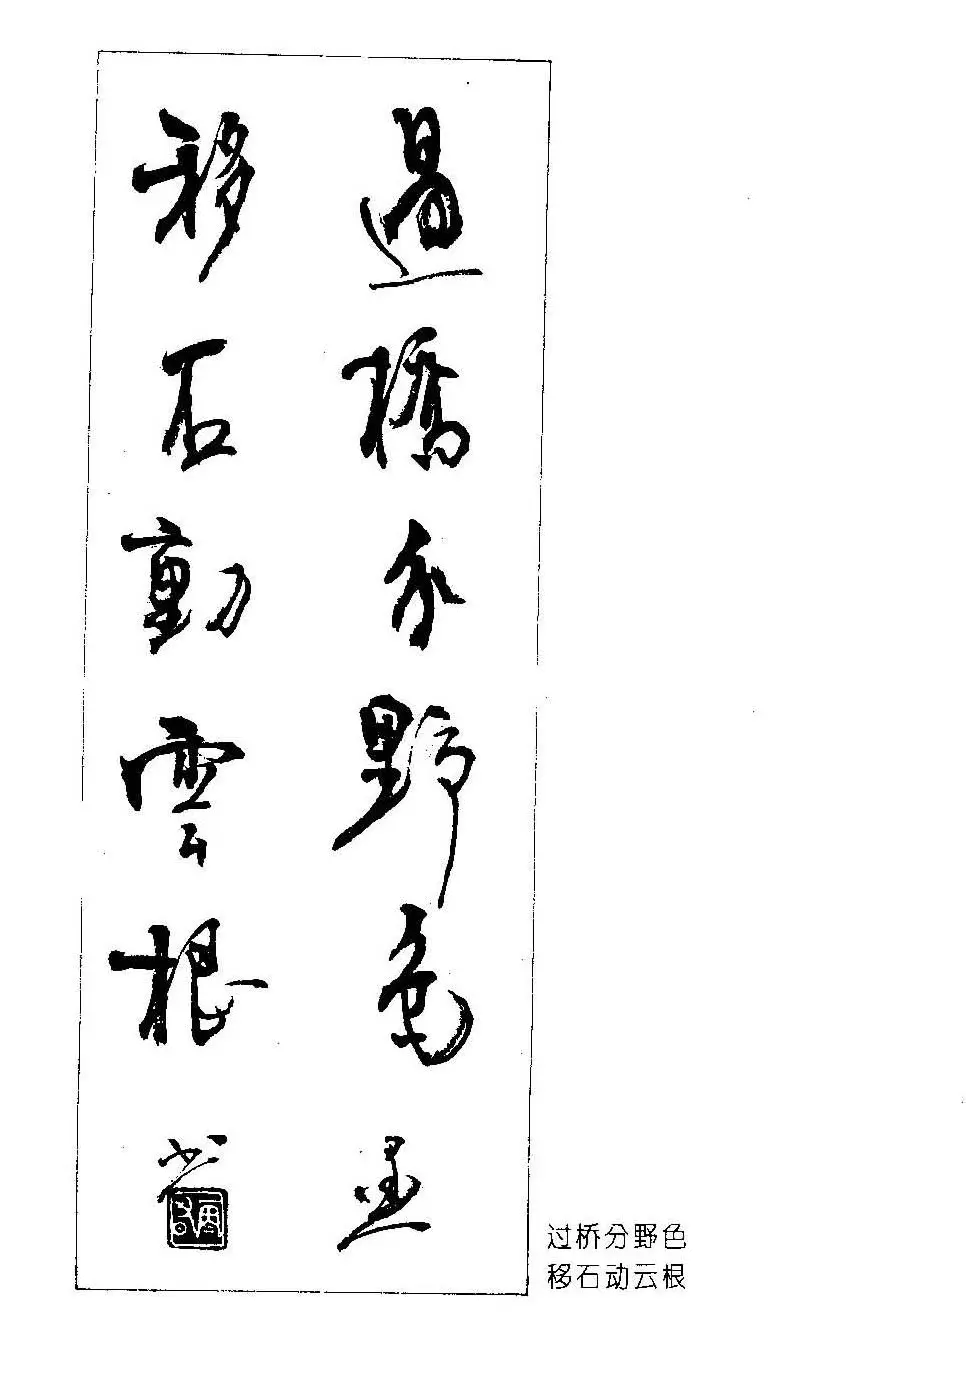 過橋分野色
移石動雲根
过桥分野色
移石动云根